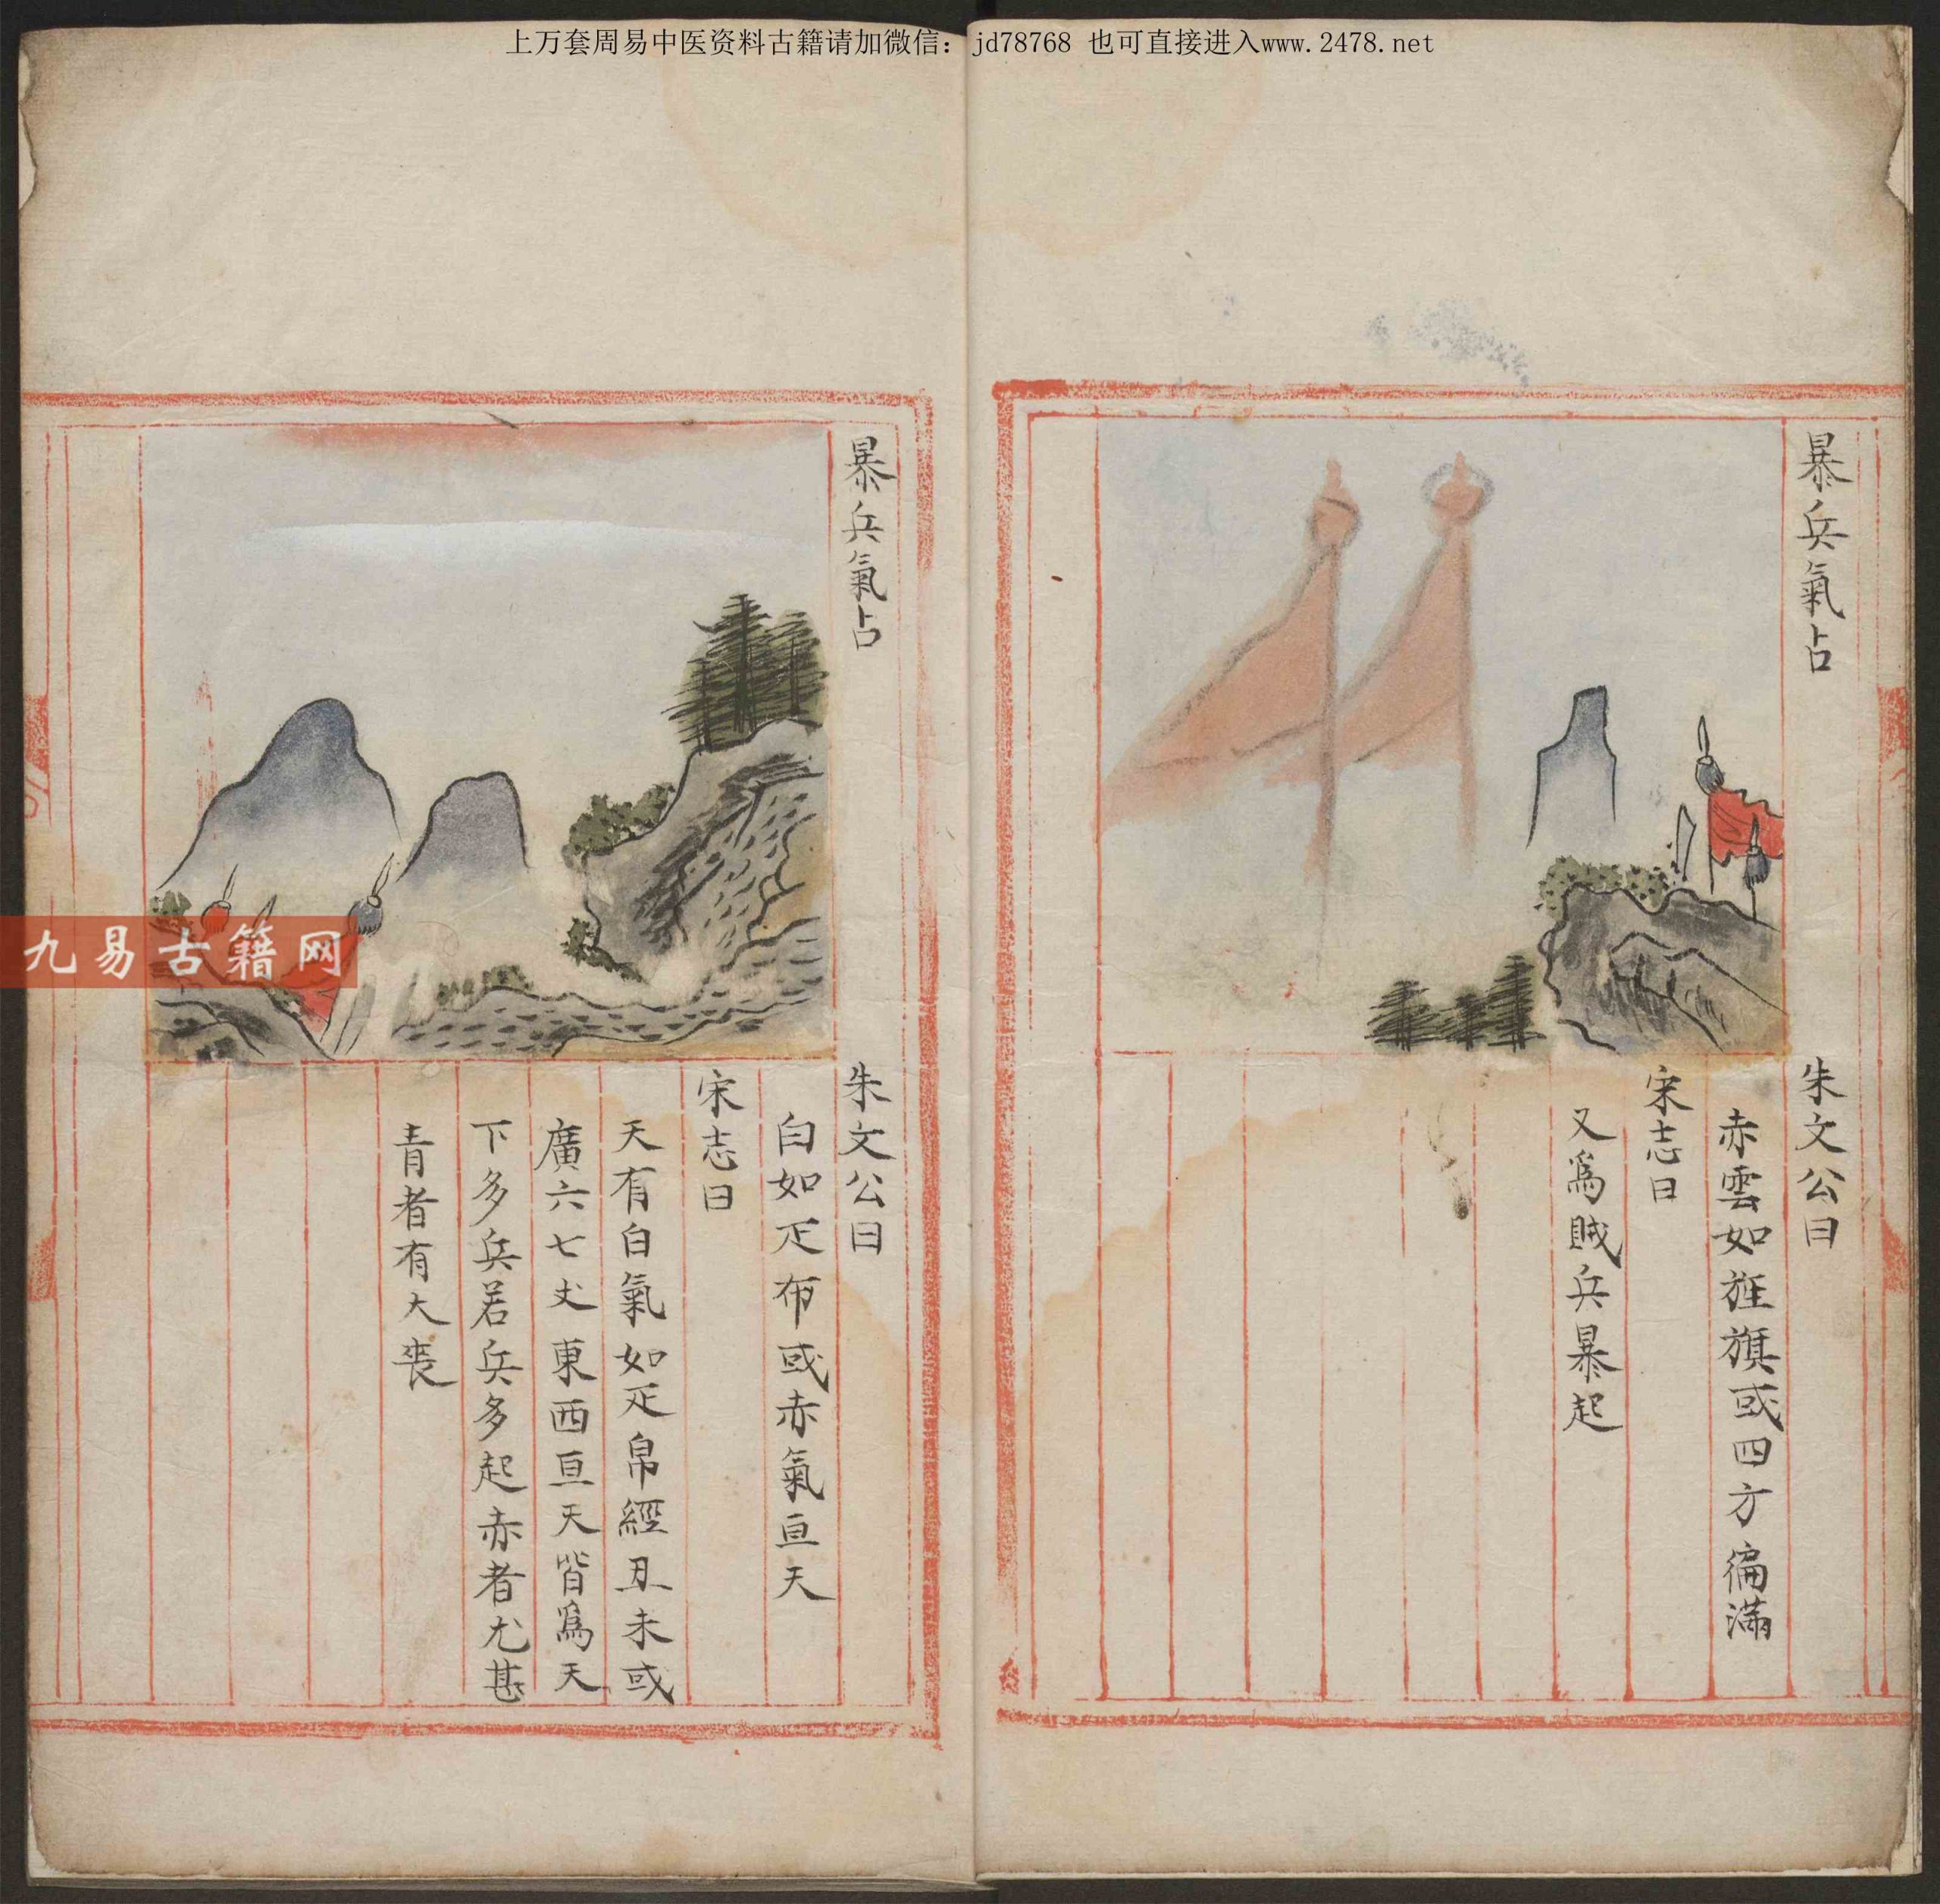 上万套周易中医资料古籍请加微信：jd78768 也可直接进入www.2478.net
暴兵氣占
朱文公曰
赤雲如旌旗或四方徧滿
宋志曰
又爲賊兵暴起
暴兵氣占
朱文公曰
白如疋布或赤氣亘天
宋志曰
天有白氣如疋帛經丑未或
廣六七丈東西亘天皆爲天
下多兵若兵多起赤者尤甚
青者有大喪
九易古籍网